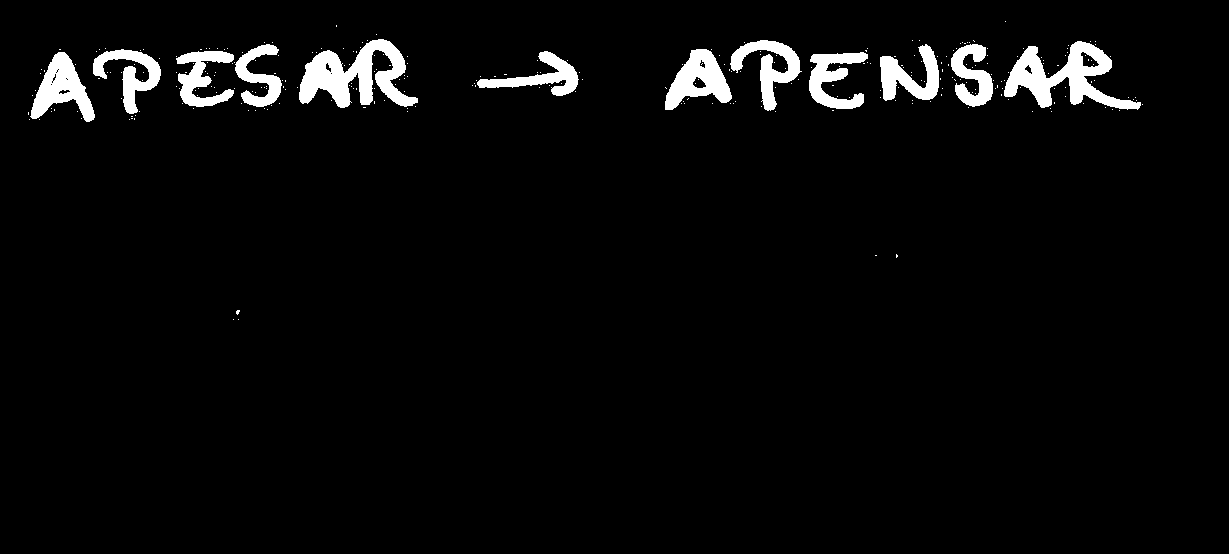 APESAR → APENSAR